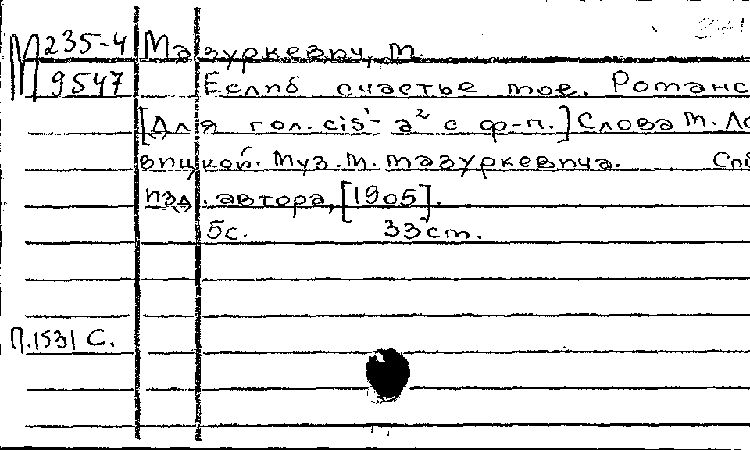 М 235-4 Мазуркевич, М.
9547 Еслиб счастье мое. Романс
[Для гол. cis¹- a² с ф-п.] Слова М. Ло
вицкой. Муз. М. Мазуркевича. Спб
изд. автора, [1905].
5с. 33 ст.
П.1531 С.